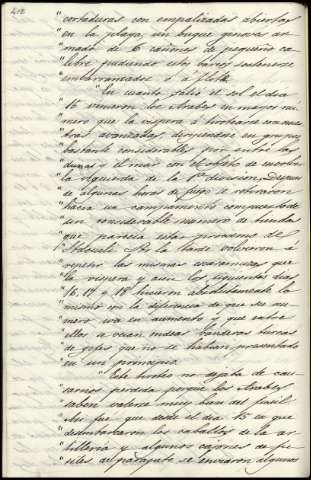 412
"cortaduras con empalizadas abiertas
"en la playa, un buque genoves ar-
"mado de 6 cañones de pequeño ca-
"libre pudiendo estos barcos sostenerse
"embarrancados ó á flote
"En cuanto salió el sol el dia
"15 vinieron los Arabes en mayor nú-
"mero que la vispera á tirotearse con nues-
"tras avanzadas, dirigiendose en grupos
"bastante considerables por entre las
"dunas y el mar con el objeto de envolver
"la izquierda de la 1ª division. Despues
"de algunas horas de fuego se retiraron
"hacia un campamento compuesto de
"un considerable número de tiendas
"que parecia estar proximo de
"Por la tarde volvieron á
"repetir las mismas que
"la vispera y aun los siguientes dias
"16, 17 y 18 hicieron absolutamente lo
"mismo con la diferencia de que su nu-
"mero iva en aumento y que entre
"ellos se veian ondear banderas turcas
"de gefes que no se habian presentado
"en un principio.
"Este tiroteo no dejaba de cau-
"sarnos perdida porque los Arabes
"saben valerse muy bien del fusil
"Asi fue que desde el dia 15 en que
"desembarcaron los caballos de la ar-
"tilleria y algunos cajones de fu-
"siles de parapeto se enviaron algunos